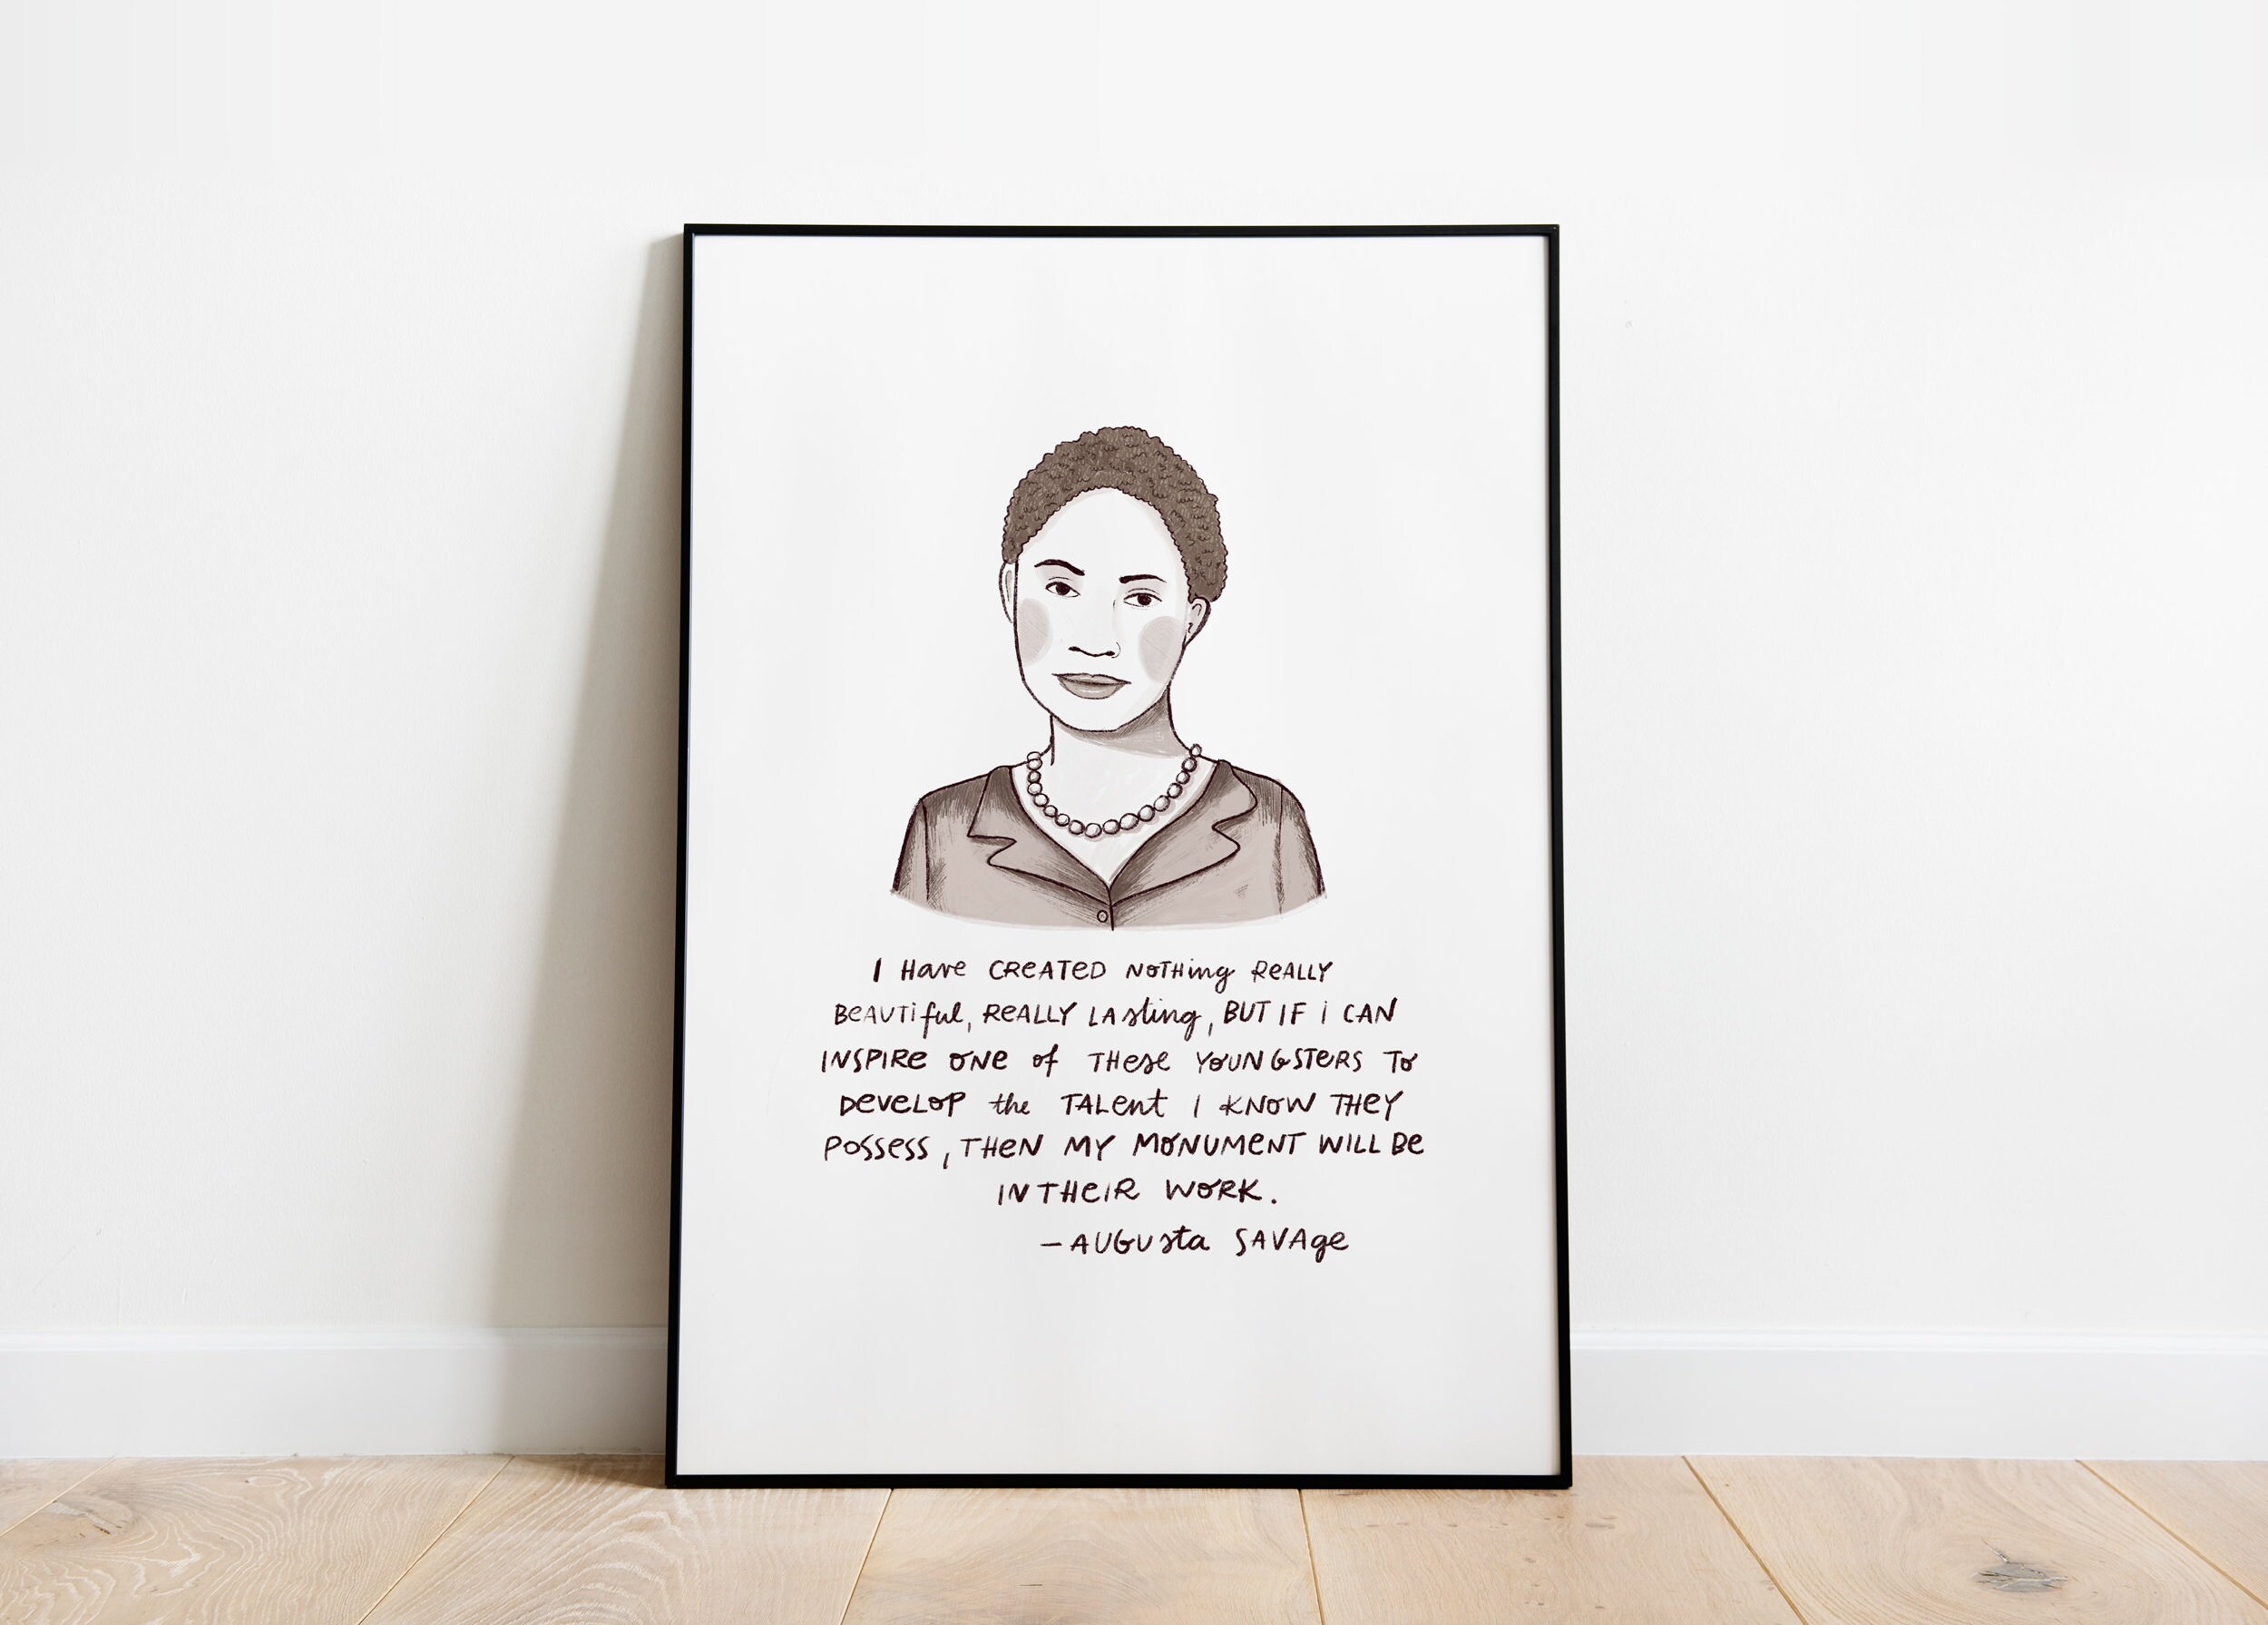 I Have CREATED NOTHing REALLY
BeAUTiful, REALLY LAsting, BUT IF i CAN
INSPIRe ONE of THese YOUNGSTeRS TO
DeveLOP the TALent I KNOW THEY
POSSess, THeN MY MONUMeNT WILL Be
IN THeIR WORK.
– AUGUsta SAVAge